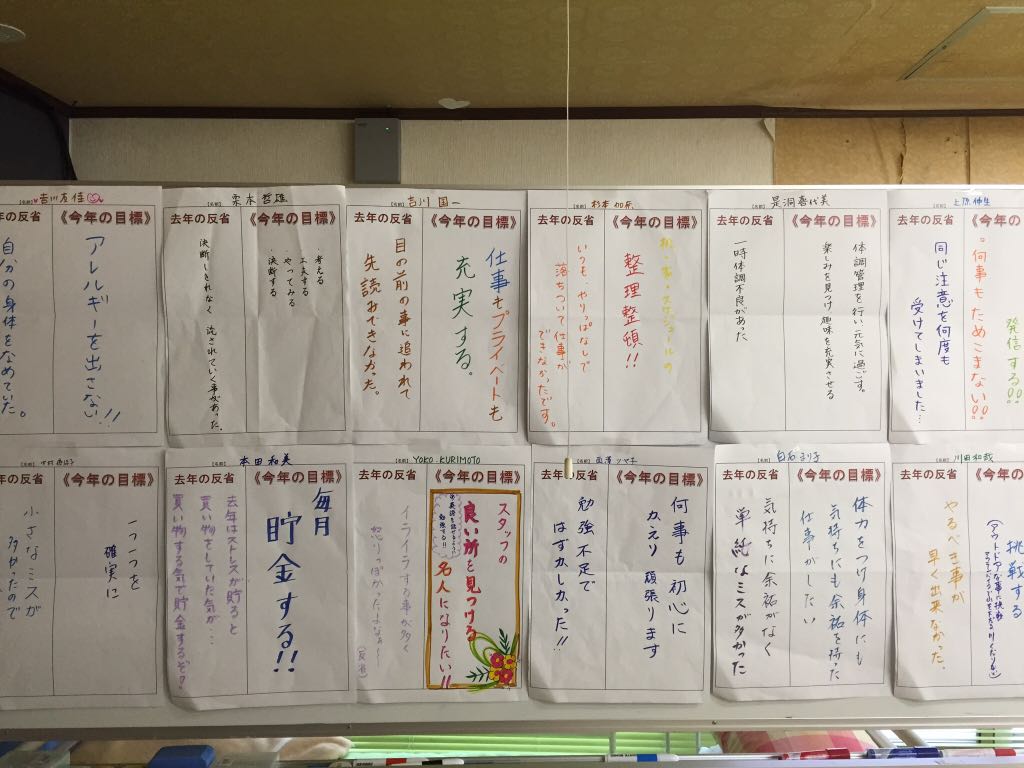 吉川友佳
去年の反省
《今年の目標》
アレルギーを出さない!!
自分の身体をなめていた。
栗本哲雄
去年の反省
《今年の目標》
考える
工夫する
やってみる
決断する
決断しきれなく 流されていく事があった。
吉川国一
去年の反省
《今年の目標》
仕事もプライベートも
充実する。
目の前の事に追われて
先読みできなかった。
杉本
去年の反省
《今年の目標》
整理整頓!!
いつも、やりっぱなしで
落ちついて仕事が
できなかったです。
是洞喜代美
去年の反省
《今年の目標》
体調管理を行い元気に過ごす。
楽しみを見つけ趣味を充実させる
一時体調不良があった
上原
去年の反省
《今年の
発信する!!
何事もためこまない!!
同じ注意を何度も
受けてしまいました…
年の反省
《今年の目標》
一つ一つを
確実に
小さなミスが
多かったので
本田和美
去年の反省
《今年の目標》
毎月
貯金する!!
去年はストレスが貯ると
買い物をしていた気が…
買い物する気で貯金するぞ!
YOKO.KURIMOTO
去年の反省
《今年の目標》
スタッフの
良い所を見つける
名人になりたい!!
イライラする事が多く
怒りっぽかったよなぁ〜
(反省)
去年の反省
《今年の目標》
何事も初心に
かえり 頑張ります
勉強不足で
はずかしかった!!
白石
去年の反省
《今年の目標》
体力をつけ身体にも
気持ちにも余裕を持った
仕事がしたい
気持ちに余裕がなく
単純なミスが多かった
川田和哉
去年の反省
《今年の
挑戦する
やるべき事が
早く出来なかった。